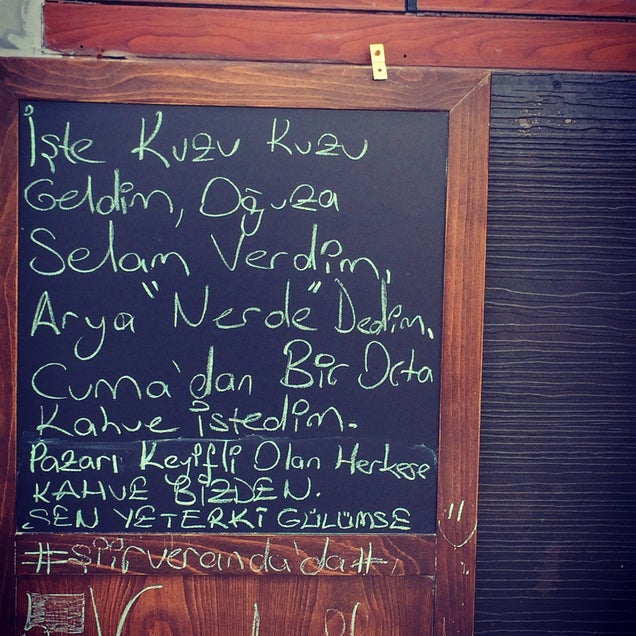 İşte Kuzu Kuzu
Geldim, Oğuza
Selam Verdim,
Arya "Nerde" Dedim,
Cuma'dan Bir Orta
Kahve istedim.
Pazarı Keyifli Olan Herkese
KAHVE BİZDEN.
SEN YETERKİ GÜLÜMSE
#şiirveranda'da#